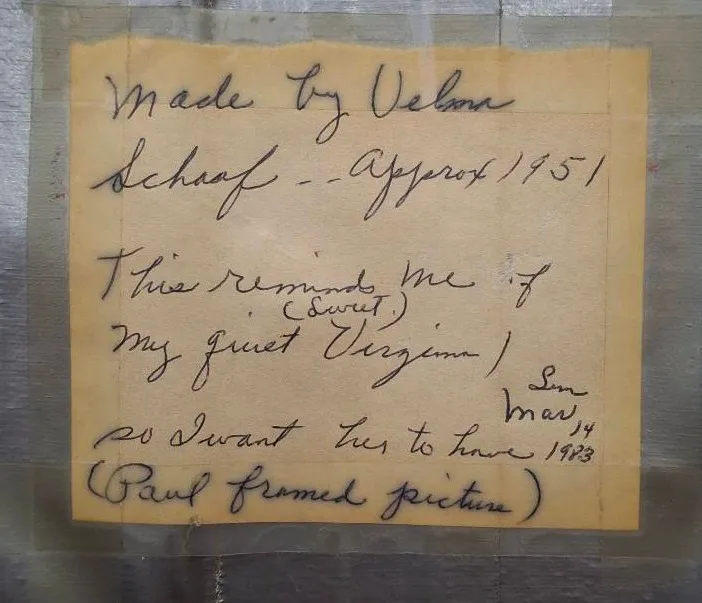 Made by Velma
Schaaf -- Approx 1951
This reminds me of
(Sweet.)
My quiet Virginia)
Sun
Mar, 14
so I want her to have 1983
(Paul framed picture)